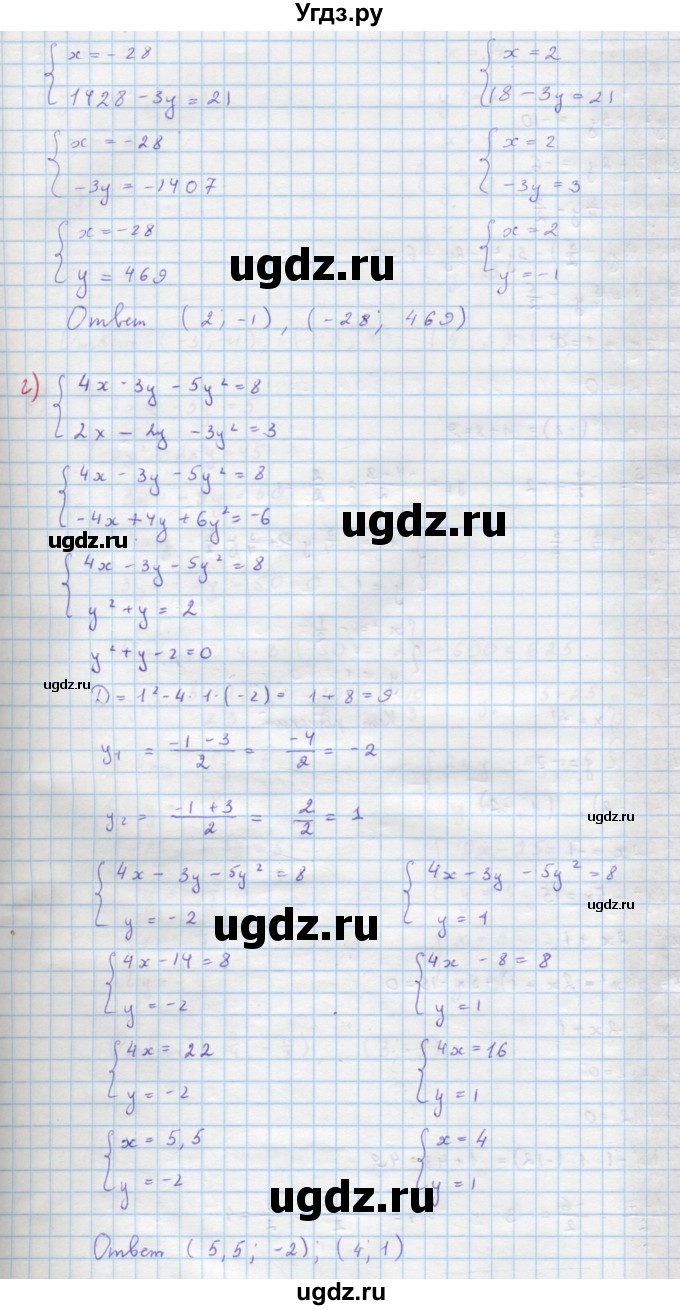 Угдз.ру
{ x = - 28    { x = 2
1428 - 3y = 21    18 - 3y = 21
{ x = -28    { x = 2
-3y = -1407    -3y = 3
{ x = -28    { x = 2
y = 469    y = -1
ugdz.ru
Ответ (2; -1), (-28; 469)
г) { 4x - 3y - 5y² = 8
2x - 2y - 3y² = 3
{ 4x - 3y - 5y² = 8
-4x + 4y + 6y² = -6
ugdz.ru
ugdz.ru
{ 4x - 3y - 5y² = 8
y² + y = 2
y² + y - 2 = 0
ugdz.ru
D = 1² - 4 · 1 · (-2) = 1 + 8 = 9
y₁ = (-1 - 3)/2 = -4/2 = -2
y₂ = (-1 + 3)/2 = 2/2 = 1
ugdz.ru
{ 4x - 3y - 5y² = 8    { 4x - 3y - 5y² = 8
ugdz.ru
y = -2    y = 1
ugdz.ru
{ 4x - 14 = 8    { 4x - 8 = 8
y = -2    y = 1
{ 4x = 22    { 4x = 16
y = -2    y = 1
{ x = 5,5    { x = 4
y = -2    y = 1
ugdz.ru
Ответ (5,5; -2); (4; 1)
ugdz.ru